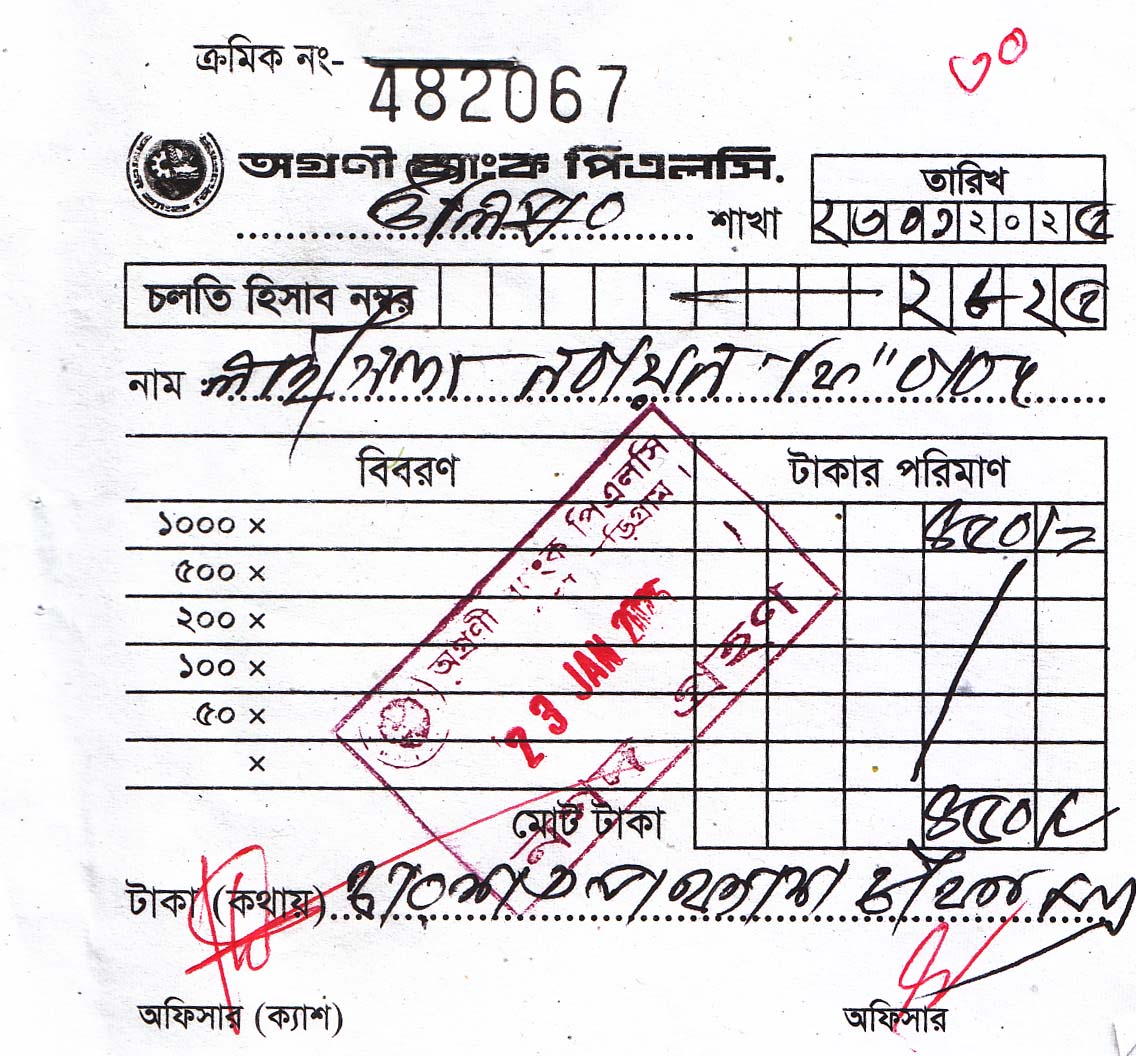 ক্রমিক নং- 482067
৩০
অগ্রণী ব্যাংক পিএলসি.
উলিপুর শাখা
তারিখ
২৩০১২০২৫
চলতি হিসাব নম্বর ২৮২৫
নাম লাইসেন্স নবায়ন "ফি" বাবদ
বিবরণ টাকার পরিমাণ
১০০০ × ৪৫০/=
৫০০ ×
২০০ ×
১০০ ×
৫০ ×
×
অগ্রণী ব্যাংক পিএলসি
23 JAN 2025
গ্রহণ
মোট টাকা ৪৫০/=
টাকা (কথায়) চারশত পঞ্চাশ টাকা মাত্র
অফিসার (ক্যাশ) অফিসার